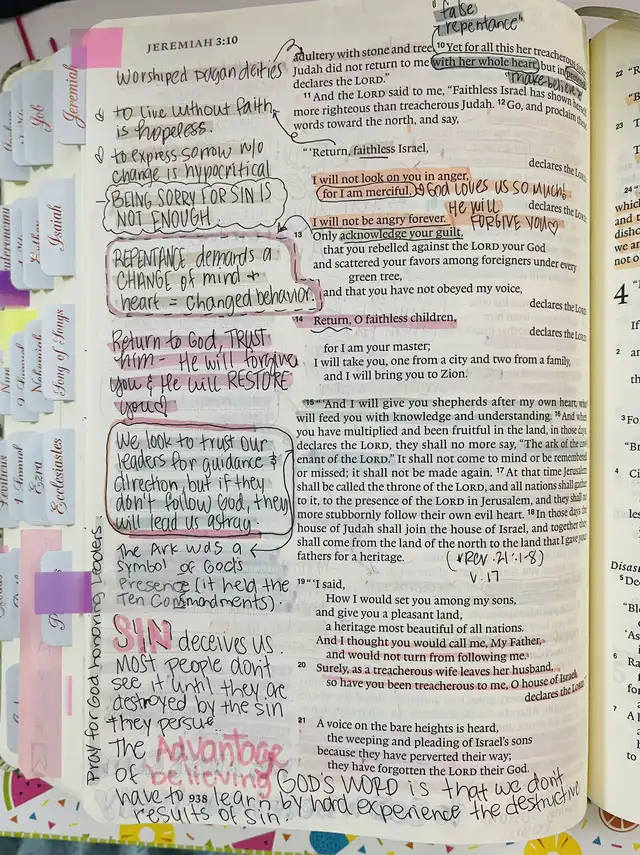 JEREMIAH 3:10
"false
repentance"
Worshiped pagan deities
to live without faith
is hopeless.
to express sorrow w/o
change is hypocritical
BEING SORRY FOR SIN IS
NOT ENOUGH.
REPENTANCE demands a
CHANGE of mind +
heart = changed behavior.
Return to God, TRUST
him – He will forgive
you & He will RESTORE
you
We look to trust our
leaders for guidance &
direction, but if they
don't follow God, they
will lead us astray.
The Ark was a
symbol of God's
Presence (it held the
Ten Commandments).
Pray for God honoring leaders.
SIN deceives us.
Most people don't
see it until they are
destroyed by the sin
they persue.
The Advantage
of believing GOD'S WORD is that we don't
have to learn by hard experience the destructive
results of sin.
938
adultery with stone and tree. 10 Yet for all this her treacherous
Judah did not return to me with her whole heart, but in
declares the LORD."
"make believe"
11 And the LORD said to me, "Faithless Israel has shown
more righteous than treacherous Judah. 12 Go, and proclaim
words toward the north, and say,
"'Return, faithless Israel,
declares the LORD.
I will not look on you in anger,
for I am merciful, God loves us so much!
declares the LORD
He will
FORGIVE YOU
I will not be angry forever.
13 Only acknowledge your guilt,
that you rebelled against the LORD your God
and scattered your favors among foreigners under every
green tree,
and that you have not obeyed my voice,
declares the LORD
14 Return, O faithless children,
declares the LORD
for I am your master;
I will take you, one from a city and two from a family,
and I will bring you to Zion.
15 "'And I will give you shepherds after my own heart, who
will feed you with knowledge and understanding. 16 And when
you have multiplied and been fruitful in the land, in those days,
declares the LORD, they shall no more say, "The ark of the cov-
enant of the LORD." It shall not come to mind or be remembered
or missed; it shall not be made again. 17 At that time Jerusalem
shall be called the throne of the LORD, and all nations shall gather
to it, to the presence of the LORD in Jerusalem, and they shall no
more stubbornly follow their own evil heart. 18 In those days the
house of Judah shall join the house of Israel, and together they
shall come from the land of the north to the land that I gave your
fathers for a heritage.
(*Rev. 21:1-8)
v. 17
19 "'I said,
How I would set you among my sons,
and give you a pleasant land,
a heritage most beautiful of all nations.
And I thought you would call me, My Father,
and would not turn from following me.
20 Surely, as a treacherous wife leaves her husband,
so have you been treacherous to me, O house of Israel,
declares the LORD
21 A voice on the bare heights is heard,
the weeping and pleading of Israel's sons
because they have perverted their way;
they have forgotten the LORD their God.
Job
Jeremiah
Isaiah
Nehemiah
Song of Songs
Ezra
Ecclesiastes
22
23
24
which
and
disho
we a
not o
4
If
2
3
4
5
6
7